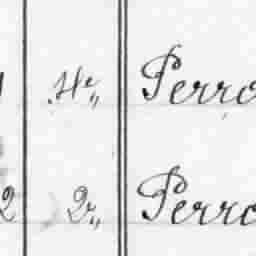 4e„ Perro
2 2e„ Perro